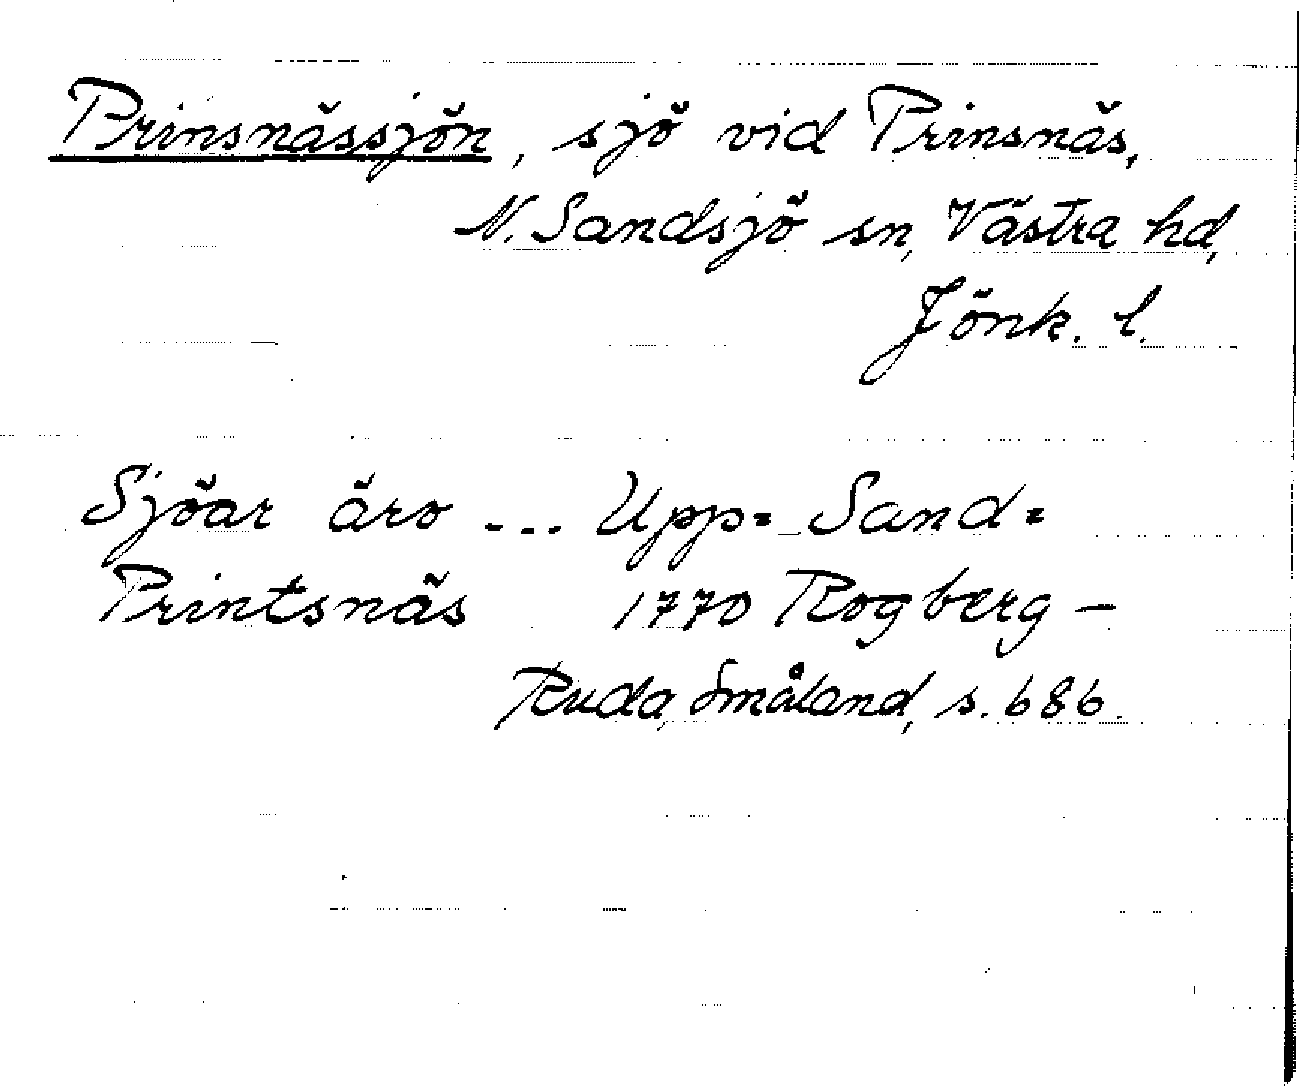 Prinsnässjön, sjö vid Prinsnäs,
N. Sandsjö sn, Västra hd,
Jönk. l.
Sjöar äro ... Upp= Sand=
Printsnäs 1770 Rogberg –
Ruda, Småland, s. 686.